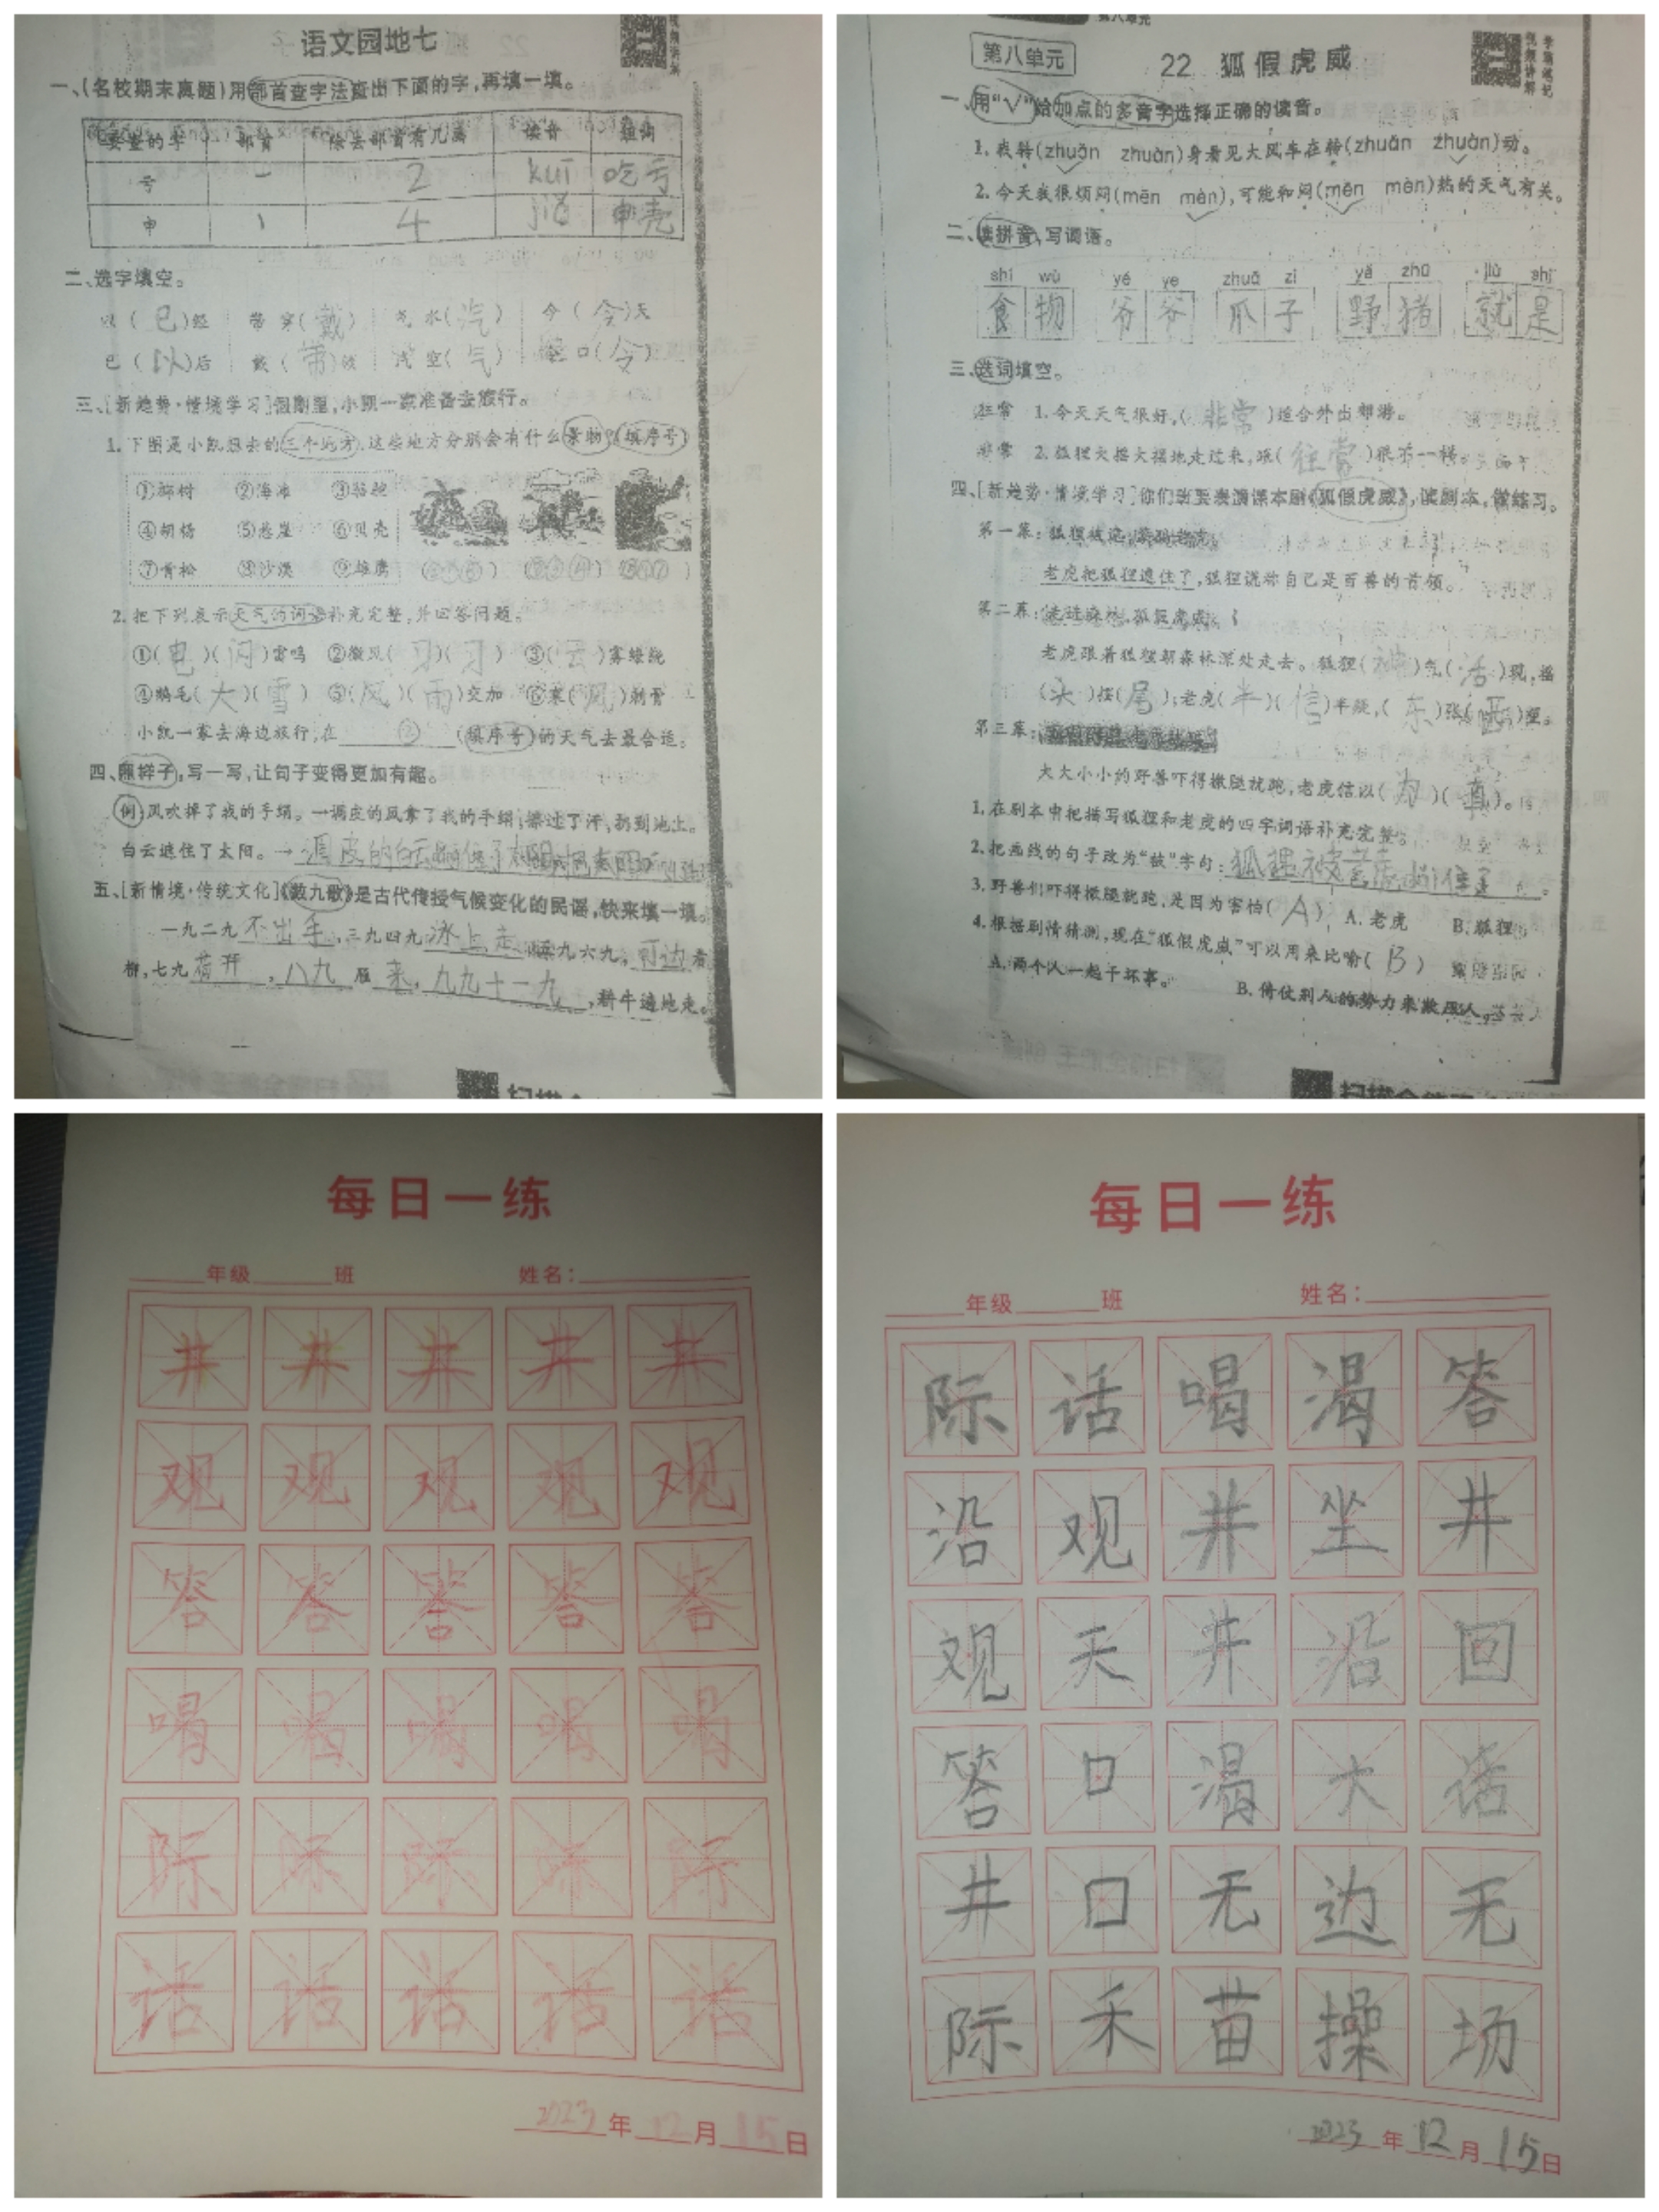 语文园地七
一、(名校期末真题)用部首查字法查出下面的字,再填一填。
要查的字 部首 除去部首有几画 读音 组词
亏 一 2 kuī 吃亏
申 丨 4 jiǎ 申壳
二、选字填空。
以(已)经 带 穿(戴) 气 水(汽) 今(令)天
已(以)后 戴(带)领 汽 空(气) 口(令)
三、[新趋势·情境学习]假期里,小凯一家准备去旅行。
1.下图是小凯想去的三个地方,这些地方分别会有什么景物?(填序号)
①椰树 ②海水 ③骆驼
④胡杨 ⑤悬崖 ⑥贝壳
⑦青松 ⑧沙漠 ⑨雄鹰
2.把下列表示天气的词语补充完整,并回答问题。
①(电)(闪)雷鸣 ②微风(习)(习) ③(云)雾缭绕
④鹅毛(大)(雪) ⑤(风)(雨)交加 ⑥寒(风)刺骨
小凯一家去海边旅行,在②(填序号)的天气去最合适。
四、照样子,写一写,让句子变得更加有趣。
例:风吹掉了我的手绢。→调皮的风拿了我的手绢,擦过了汗,扔到地上。
白云遮住了太阳。→调皮的白云
五、[新情境·传统文化]《数九歌》是古代传授气候变化的民谣,快来填一填。
一九二九不出手,三九四九冰上走,五九六九,河边看
柳,七九荷开,八九雁来,九九十一九,耕牛遍地走。
第八单元
第八单元 22 狐假虎威
一、用“√”给加点的多音字选择正确的读音。
1.我转(zhuǎn zhuàn)身看见大风车在转(zhuǎn zhuàn)动。
2.今天我很烦闷(mēn mèn),可能和闷(mēn mèn)热的天气有关。
二、读拼音,写词语。
shí wù yé ye zhuǎ zi yě zhū jiù shì
食物 爷爷 爪子 野猪 就是
三、选词填空。
往常 1.今天天气很好,(非常)适合外出郊游。
非常 2.狐狸大摇大摆地走过来,跟(往常)很不一样。
四、[新趋势·情境学习]你们班要表演课本剧《狐假虎威》,读剧本,做练习。
第一幕:狐狸被逮,蒙骗老虎。
老虎把狐狸逮住了,狐狸谎称自己是百兽的首领。
第二幕:走进森林,狐假虎威。
老虎跟着狐狸朝森林深处走去。狐狸(神)气(活)现,摇
(头)摆(尾);老虎(半)(信)半疑,(东)张(西)望。
第三幕:
大大小小的野兽吓得撒腿就跑,老虎信以(为)(真)。
1.在剧本中把描写狐狸和老虎的四字词语补充完整。
2.把画线的句子改为“被”字句:狐狸被老虎逮住了。
3.野兽们吓得撒腿就跑,是因为害怕(A) A.老虎 B.狐狸
4.根据剧情猜测,现在“狐假虎威”可以用来比喻(B)
A.两个人一起干坏事。 B.倚仗别人的势力来欺压人。
每日一练
年级 班 姓名:
井井井井井
观观观观观
答答答答答
喝喝喝喝喝
际际际际际
话话话话话
2023年12月15日
每日一练
年级 班 姓名:
际话喝渴答
沿观井坐井
观天井沿回
答口渴大话
井口无边无
际禾苗操场
2023年12月15日